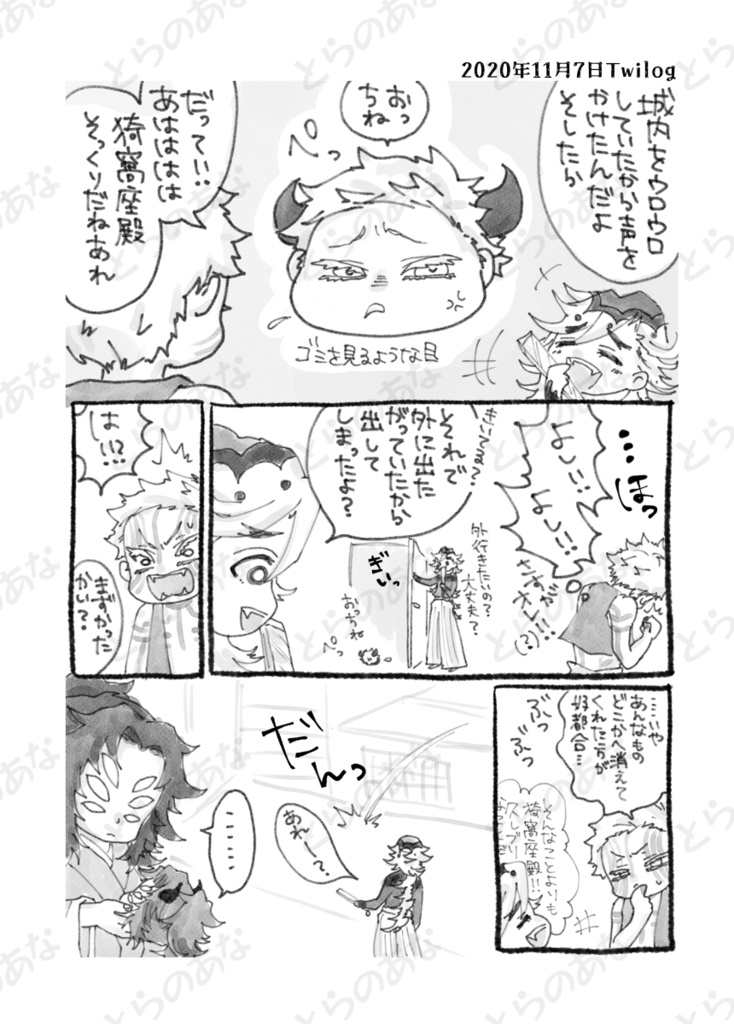 2020年11月7日Twilog
城内をウロウロ
していたから声を
かけたんだよ
そしたら
おっ
ちね
ペっ
ゴミを見るような目
だってい!!
あはははは
猗窩座殿
そっくりだねあれ
…ほっ
よしい!!
よしい!!
さすがオレ!!
(?)
きいてる〜?
それで
外に出た
がっていたから
出して
しまったよ?
外行きたいの?
大丈夫?
ぎいっ
おっちね
ペっ
は!?
まずかった
かい?
……いや
あんなもの
どこかへ消えて
くれた方が
好都合…
ぶっ
ぶっ
そんなことよりも
猗窩座殿!!
久しブリ
だんっ
あれー?
……
とらのあな